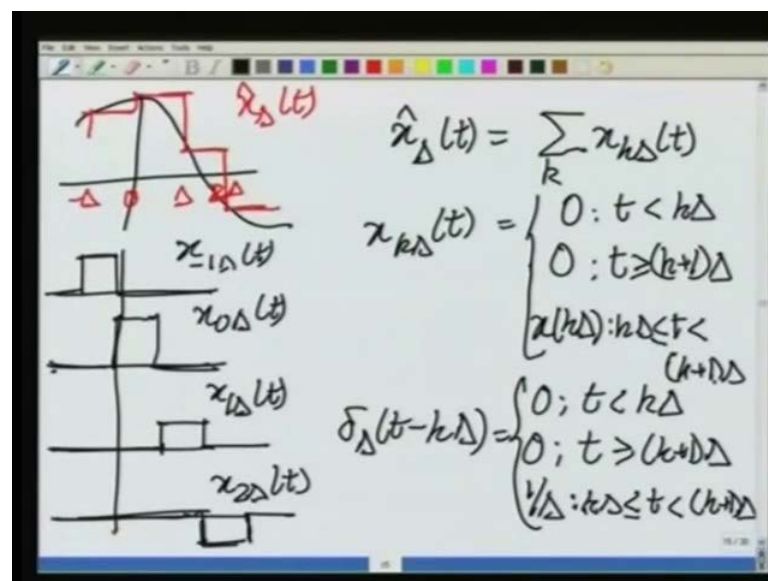 File Edit View Insert Actions Tools Help
B I
x̂_Δ(t)
-Δ 0 Δ 2Δ
x_{-1Δ}(t)
x_{0Δ}(t)
x_{1Δ}(t)
x_{2Δ}(t)
x̂_Δ(t) = Σ_k x_{kΔ}(t)
x_{kΔ}(t) = { 0 : t < kΔ
0 ; t ≥ (k+1)Δ
x(kΔ) : kΔ ≤ t <
(k+1)Δ
δ_Δ(t-kΔ) = { 0 ; t < kΔ
0 ; t ≥ (k+1)Δ
1/Δ : kΔ ≤ t < (k+1)Δ